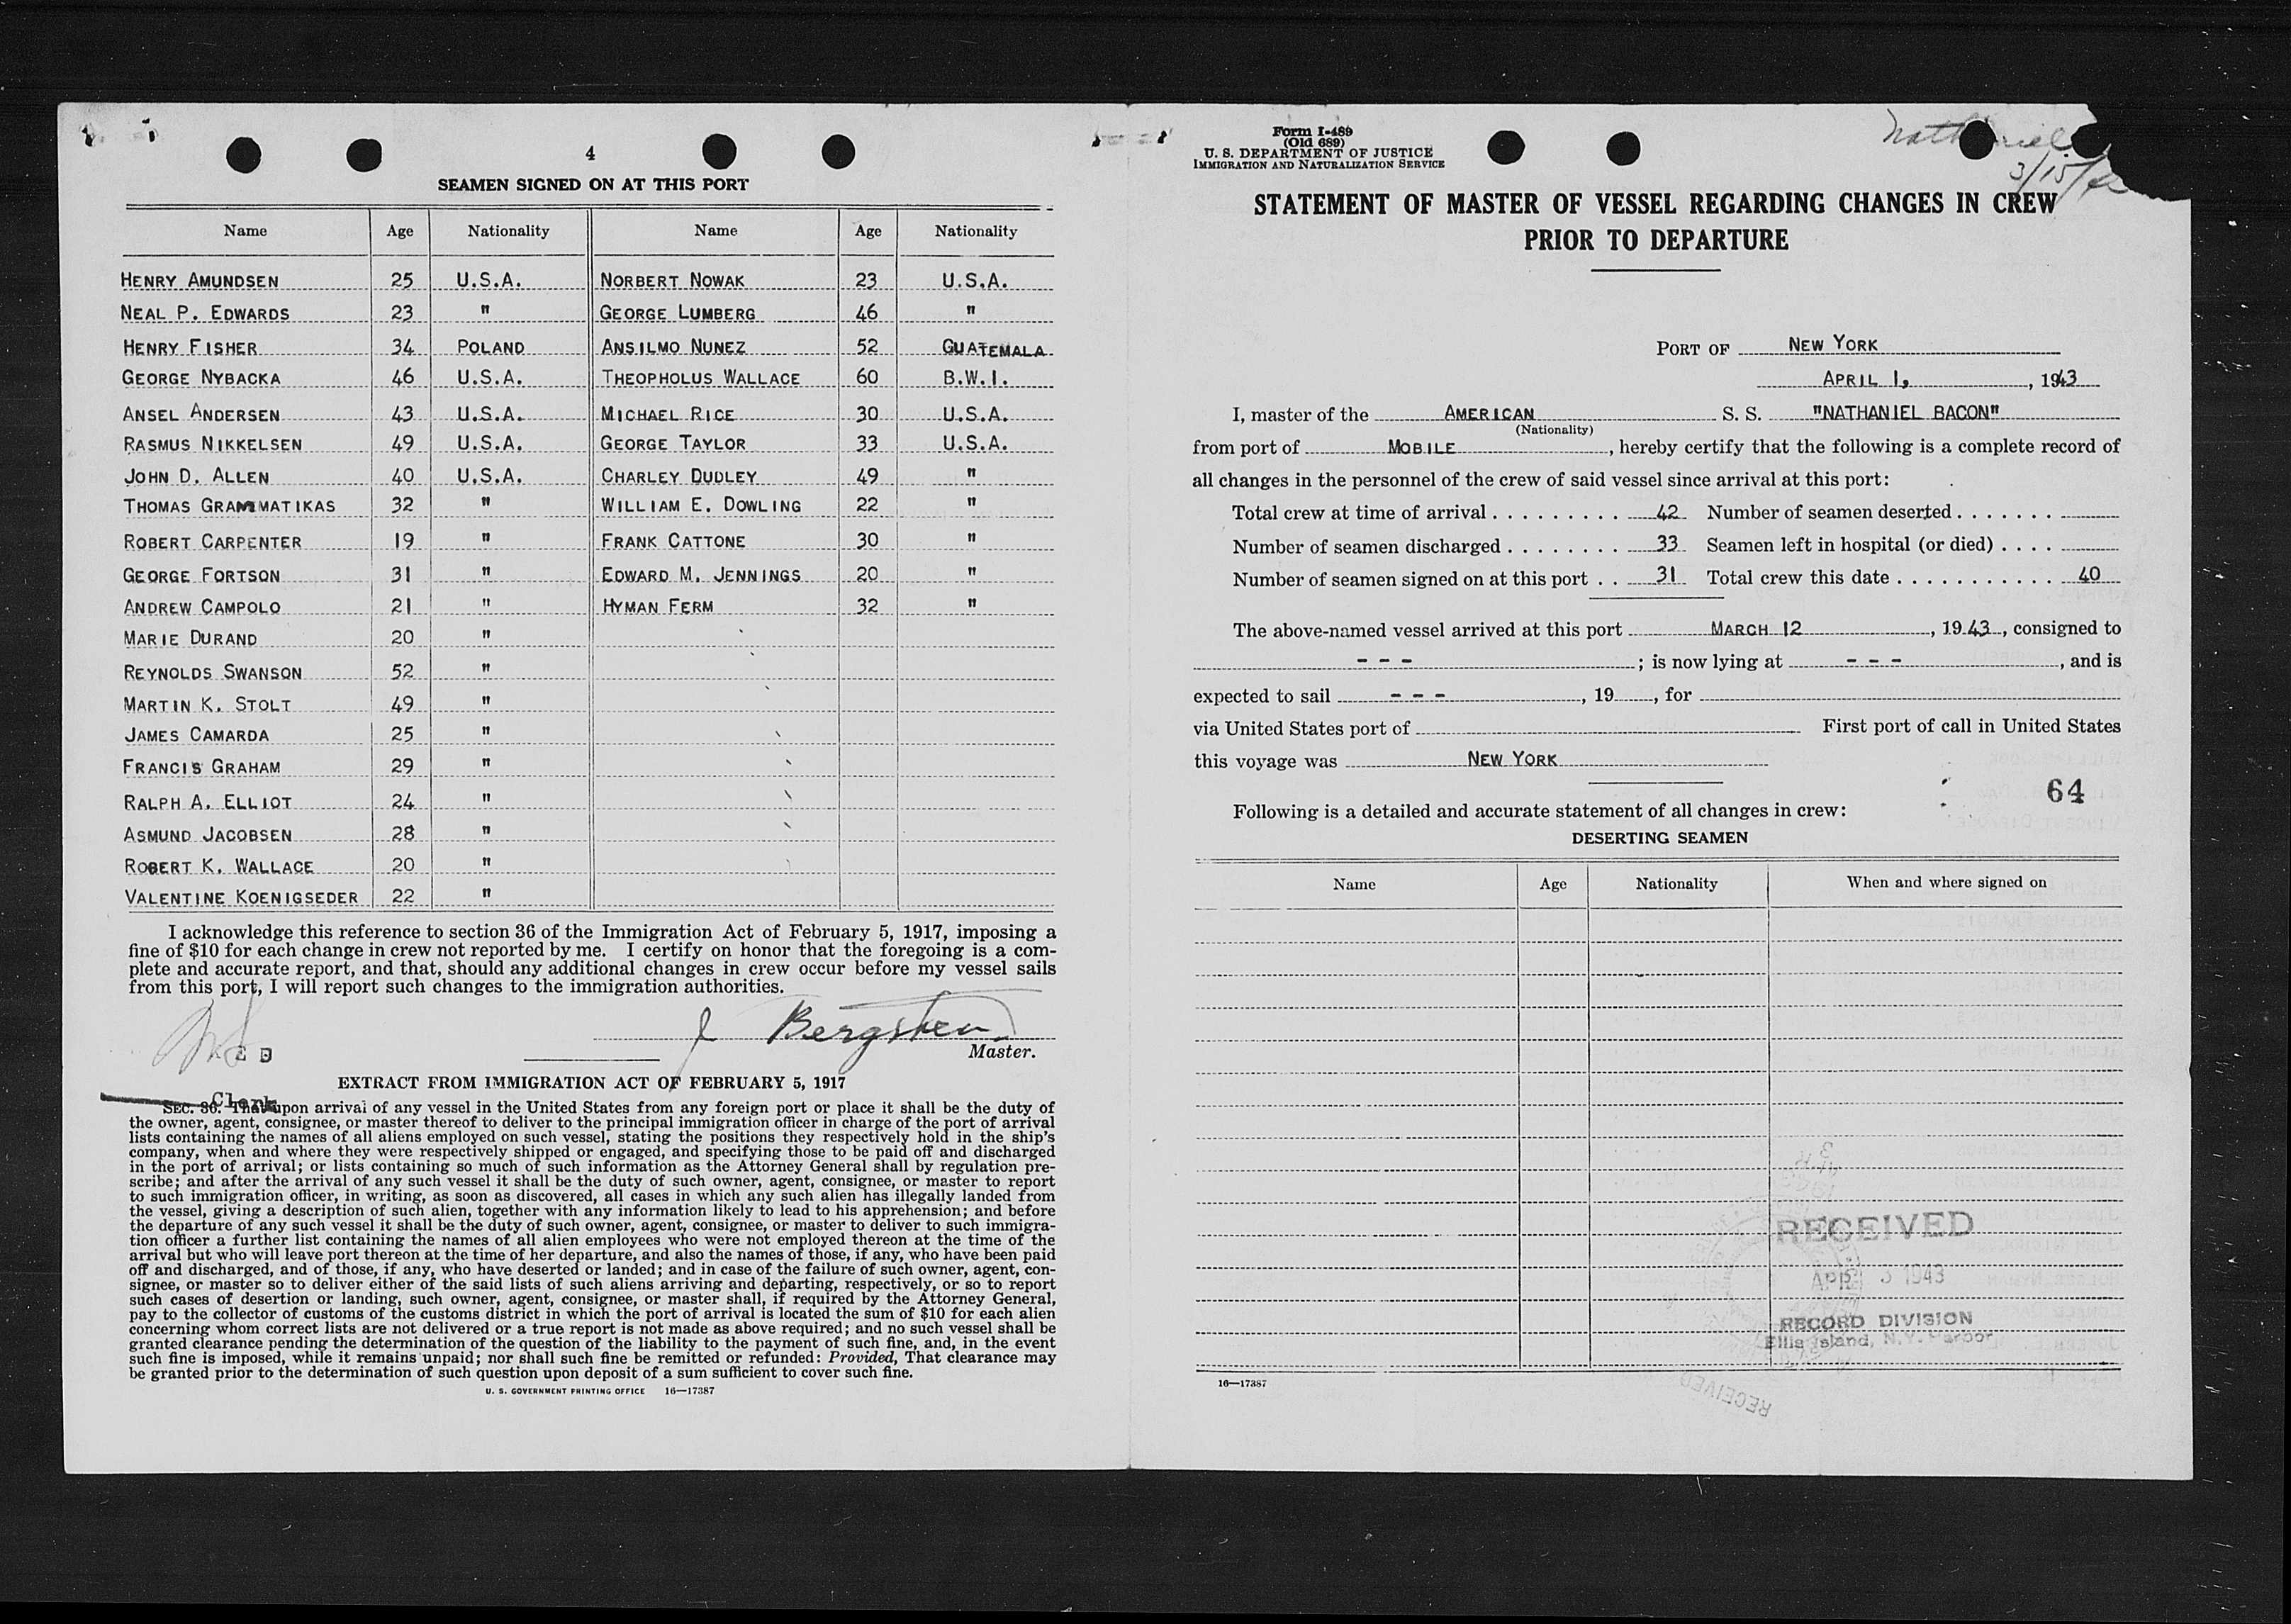 4
SEAMEN SIGNED ON AT THIS PORT
Name Age Nationality Name Age Nationality
HENRY AMUNDSEN 25 U.S.A. NORBERT NOWAK 23 U.S.A.
NEAL P. EDWARDS 23 " GEORGE LUMBERG 46 "
HENRY FISHER 34 POLAND ANSILMO NUNEZ 52 GUATEMALA
GEORGE NYBACKA 46 U.S.A. THEOPHOLUS WALLACE 60 B.W.I.
ANSEL ANDERSEN 43 U.S.A. MICHAEL RICE 30 U.S.A.
RASMUS NIKKELSEN 49 U.S.A. GEORGE TAYLOR 33 U.S.A.
JOHN D. ALLEN 40 U.S.A. CHARLEY DUDLEY 49 "
THOMAS GRAMMATIKAS 32 " WILLIAM E. DOWLING 22 "
ROBERT CARPENTER 19 " FRANK CATTONE 30 "
GEORGE FORTSON 31 " EDWARD M. JENNINGS 20 "
ANDREW CAMPOLO 21 " HYMAN FERM 32 "
MARIE DURAND 20 "
REYNOLDS SWANSON 52 "
MARTIN K. STOLT 49 "
JAMES CAMARDA 25 "
FRANCIS GRAHAM 29 "
RALPH A. ELLIOT 24 "
ASMUND JACOBSEN 28 "
ROBERT K. WALLACE 20 "
VALENTINE KOENIGSEDER 22 "
I acknowledge this reference to section 36 of the Immigration Act of February 5, 1917, imposing a
fine of $10 for each change in crew not reported by me. I certify on honor that the foregoing is a com-
plete and accurate report, and that, should any additional changes in crew occur before my vessel sails
from this port, I will report such changes to the immigration authorities.
J Bergsten
Master.
EXTRACT FROM IMMIGRATION ACT OF FEBRUARY 5, 1917
Clerk
SEC. 36. That upon arrival of any vessel in the United States from any foreign port or place it shall be the duty of
the owner, agent, consignee, or master thereof to deliver to the principal immigration officer in charge of the port of arrival
lists containing the names of all aliens employed on such vessel, stating the positions they respectively hold in the ship's
company, when and where they were respectively shipped or engaged, and specifying those to be paid off and discharged
in the port of arrival; or lists containing so much of such information as the Attorney General shall by regulation pre-
scribe; and after the arrival of any such vessel it shall be the duty of such owner, agent, consignee, or master to report
to such immigration officer, in writing, as soon as discovered, all cases in which any such alien has illegally landed from
the vessel, giving a description of such alien, together with any information likely to lead to his apprehension; and before
the departure of any such vessel it shall be the duty of such owner, agent, consignee, or master to deliver to such immigra-
tion officer a further list containing the names of all alien employees who were not employed thereon at the time of the
arrival but who will leave port thereon at the time of her departure, and also the names of those, if any, who have been paid
off and discharged, and of those, if any, who have deserted or landed; and in case of the failure of such owner, agent, con-
signee, or master so to deliver either of the said lists of such aliens arriving and departing, respectively, or so to report
such cases of desertion or landing, such owner, agent, consignee, or master shall, if required by the Attorney General,
pay to the collector of customs of the customs district in which the port of arrival is located the sum of $10 for each alien
concerning whom correct lists are not delivered or a true report is not made as above required; and no such vessel shall be
granted clearance pending the determination of the question of the liability to the payment of such fine, and, in the event
such fine is imposed, while it remains unpaid; nor shall such fine be remitted or refunded: Provided, That clearance may
be granted prior to the determination of such question upon deposit of a sum sufficient to cover such fine.
U. S. GOVERNMENT PRINTING OFFICE 16—17387
Form I-489
(Old 689)
U. S. DEPARTMENT OF JUSTICE
IMMIGRATION AND NATURALIZATION SERVICE
3/15/
STATEMENT OF MASTER OF VESSEL REGARDING CHANGES IN CREW
PRIOR TO DEPARTURE
PORT OF NEW YORK
APRIL 1, , 1943
I, master of the AMERICAN S. S. "NATHANIEL BACON"
(Nationality)
from port of MOBILE , hereby certify that the following is a complete record of
all changes in the personnel of the crew of said vessel since arrival at this port:
Total crew at time of arrival . . . . . . . . . . 42 Number of seamen deserted . . . . . . .
Number of seamen discharged . . . . . . . . 33 Seamen left in hospital (or died) . . . .
Number of seamen signed on at this port . . 31 Total crew this date . . . . . . . . . . . . 40
The above-named vessel arrived at this port MARCH 12 , 1943 , consigned to
- - - ; is now lying at - - - , and is
expected to sail - - - , 19 , for
via United States port of First port of call in United States
this voyage was NEW YORK
64
Following is a detailed and accurate statement of all changes in crew:
DESERTING SEAMEN
Name Age Nationality When and where signed on
RECEIVED
APR 3 1943
RECORD DIVISION
Ellis Island, N.Y. Harbor
16—17387
RECEIVED